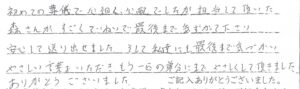 初めての葬儀で心細しか独でしたが担当して頂いた
森さんが すごくていねいで最後まであずかて下さり
安心して送り出せました。そして私達にも最後まで気づかい
やさしい言葉いただき もう一らの葬台にまで やさしくして頂きました
ありがとう ございました。
ご記入ありがとうございました。